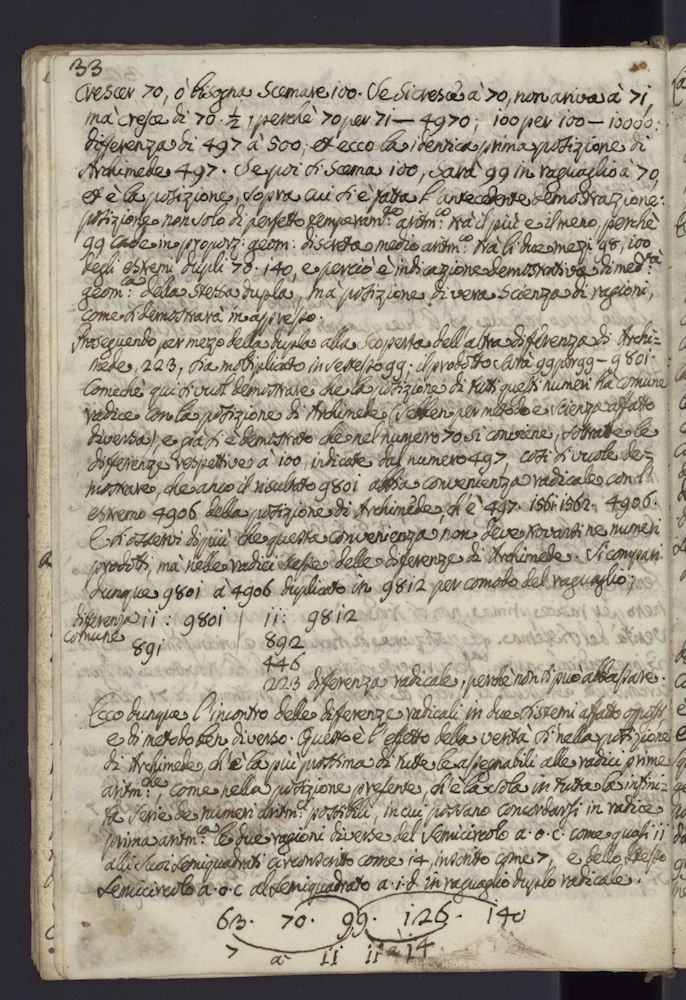 33
crescer 70, ò bisogna scemare 100. Se si cresce à 70, non ariva à 71,
mà cresce di 70. ½, perchè 70 per 71 — 4970; 100 per 100 — 10000:
differenza di 497 à 500; et ecco la identica prima posizione di
Archimede 497. Se poi si scema 100, sarà 99 in raguaglio à 70,
et è la posizione, sopra cui si è fatta l'antecedente demostrazione:
posizione non solo di perfetto temperam:to aritm:co trà il più e il meno, perchè
99 cade in proporz: geom: discreta medio aritm:co trà li due mezi 98, 100
degli estremi dupli 70. 140, e perciò è indicazione demostrativa di med:tà
geom:ca della stessa dupla, mà posizione di vera scienza di ragioni,
come si demostrarà in appresso.
Proseguendo per mezo della dupla alla scoperta dell'altra differenza di Archi-
mede, 223, sia moltiplicato in se stesso 99. il prodotto sarà 99 per 99 — 9801.
Comechè qui si vuol demostrare che la posizione di tutti questi numeri hà comune
radice con la posizione di Archimede (sebben per metodo e scienza affatto
diversa) e già si è demostrato che nel numero 70 si conviene, sottratte le
differenze respettive à 100, indicate dal numero 497, così si vuole de-
mostrare, che anco il risultato 9801 abbia convenienza radicale con l'
estremo 4906 della posizione di Archimede, ch'è 497. 1561. 1562. 4906.
E si osservi di più che questa convenienza non deve trovarsi ne numeri
prodotti, mà nelle radici stesse delle diferenze di Archimede. Si compari
dunque 9801 à 4906 duplicato in 9812 per comodo del raguaglio;
diferenza 11: 9801 | 11: 9812
comune 891 892
446
223 diferenza radicale, perchè non si può abbassare.
Ecco dunque l'incontro delle diferenze radicali in due sistemi affatto opposti,
e di metodo ben diverso. Questo è l'effetto della verità sì nella posizione
di Archimede, ch'è la più prossima di tutte le assegnabili alle radici prime
aritm:che come nella posizione presente, ch'è la sola in tutta la infini-
ta serie de numeri aritm:ci possibili, in cui possano concordarsi in radice
prima aritm:ca le due ragioni diverse del semicircolo a. o. c. come quasi 11
alli suoi semiquadrati circonscritto come 14, inscritto come 7, e dello stesso
semicircolo a. o. c al semiquadrato a. i. d. in raguaglio duplo radicale.
63. 70. 99. 126. 140
7 a 11 11 à 14.